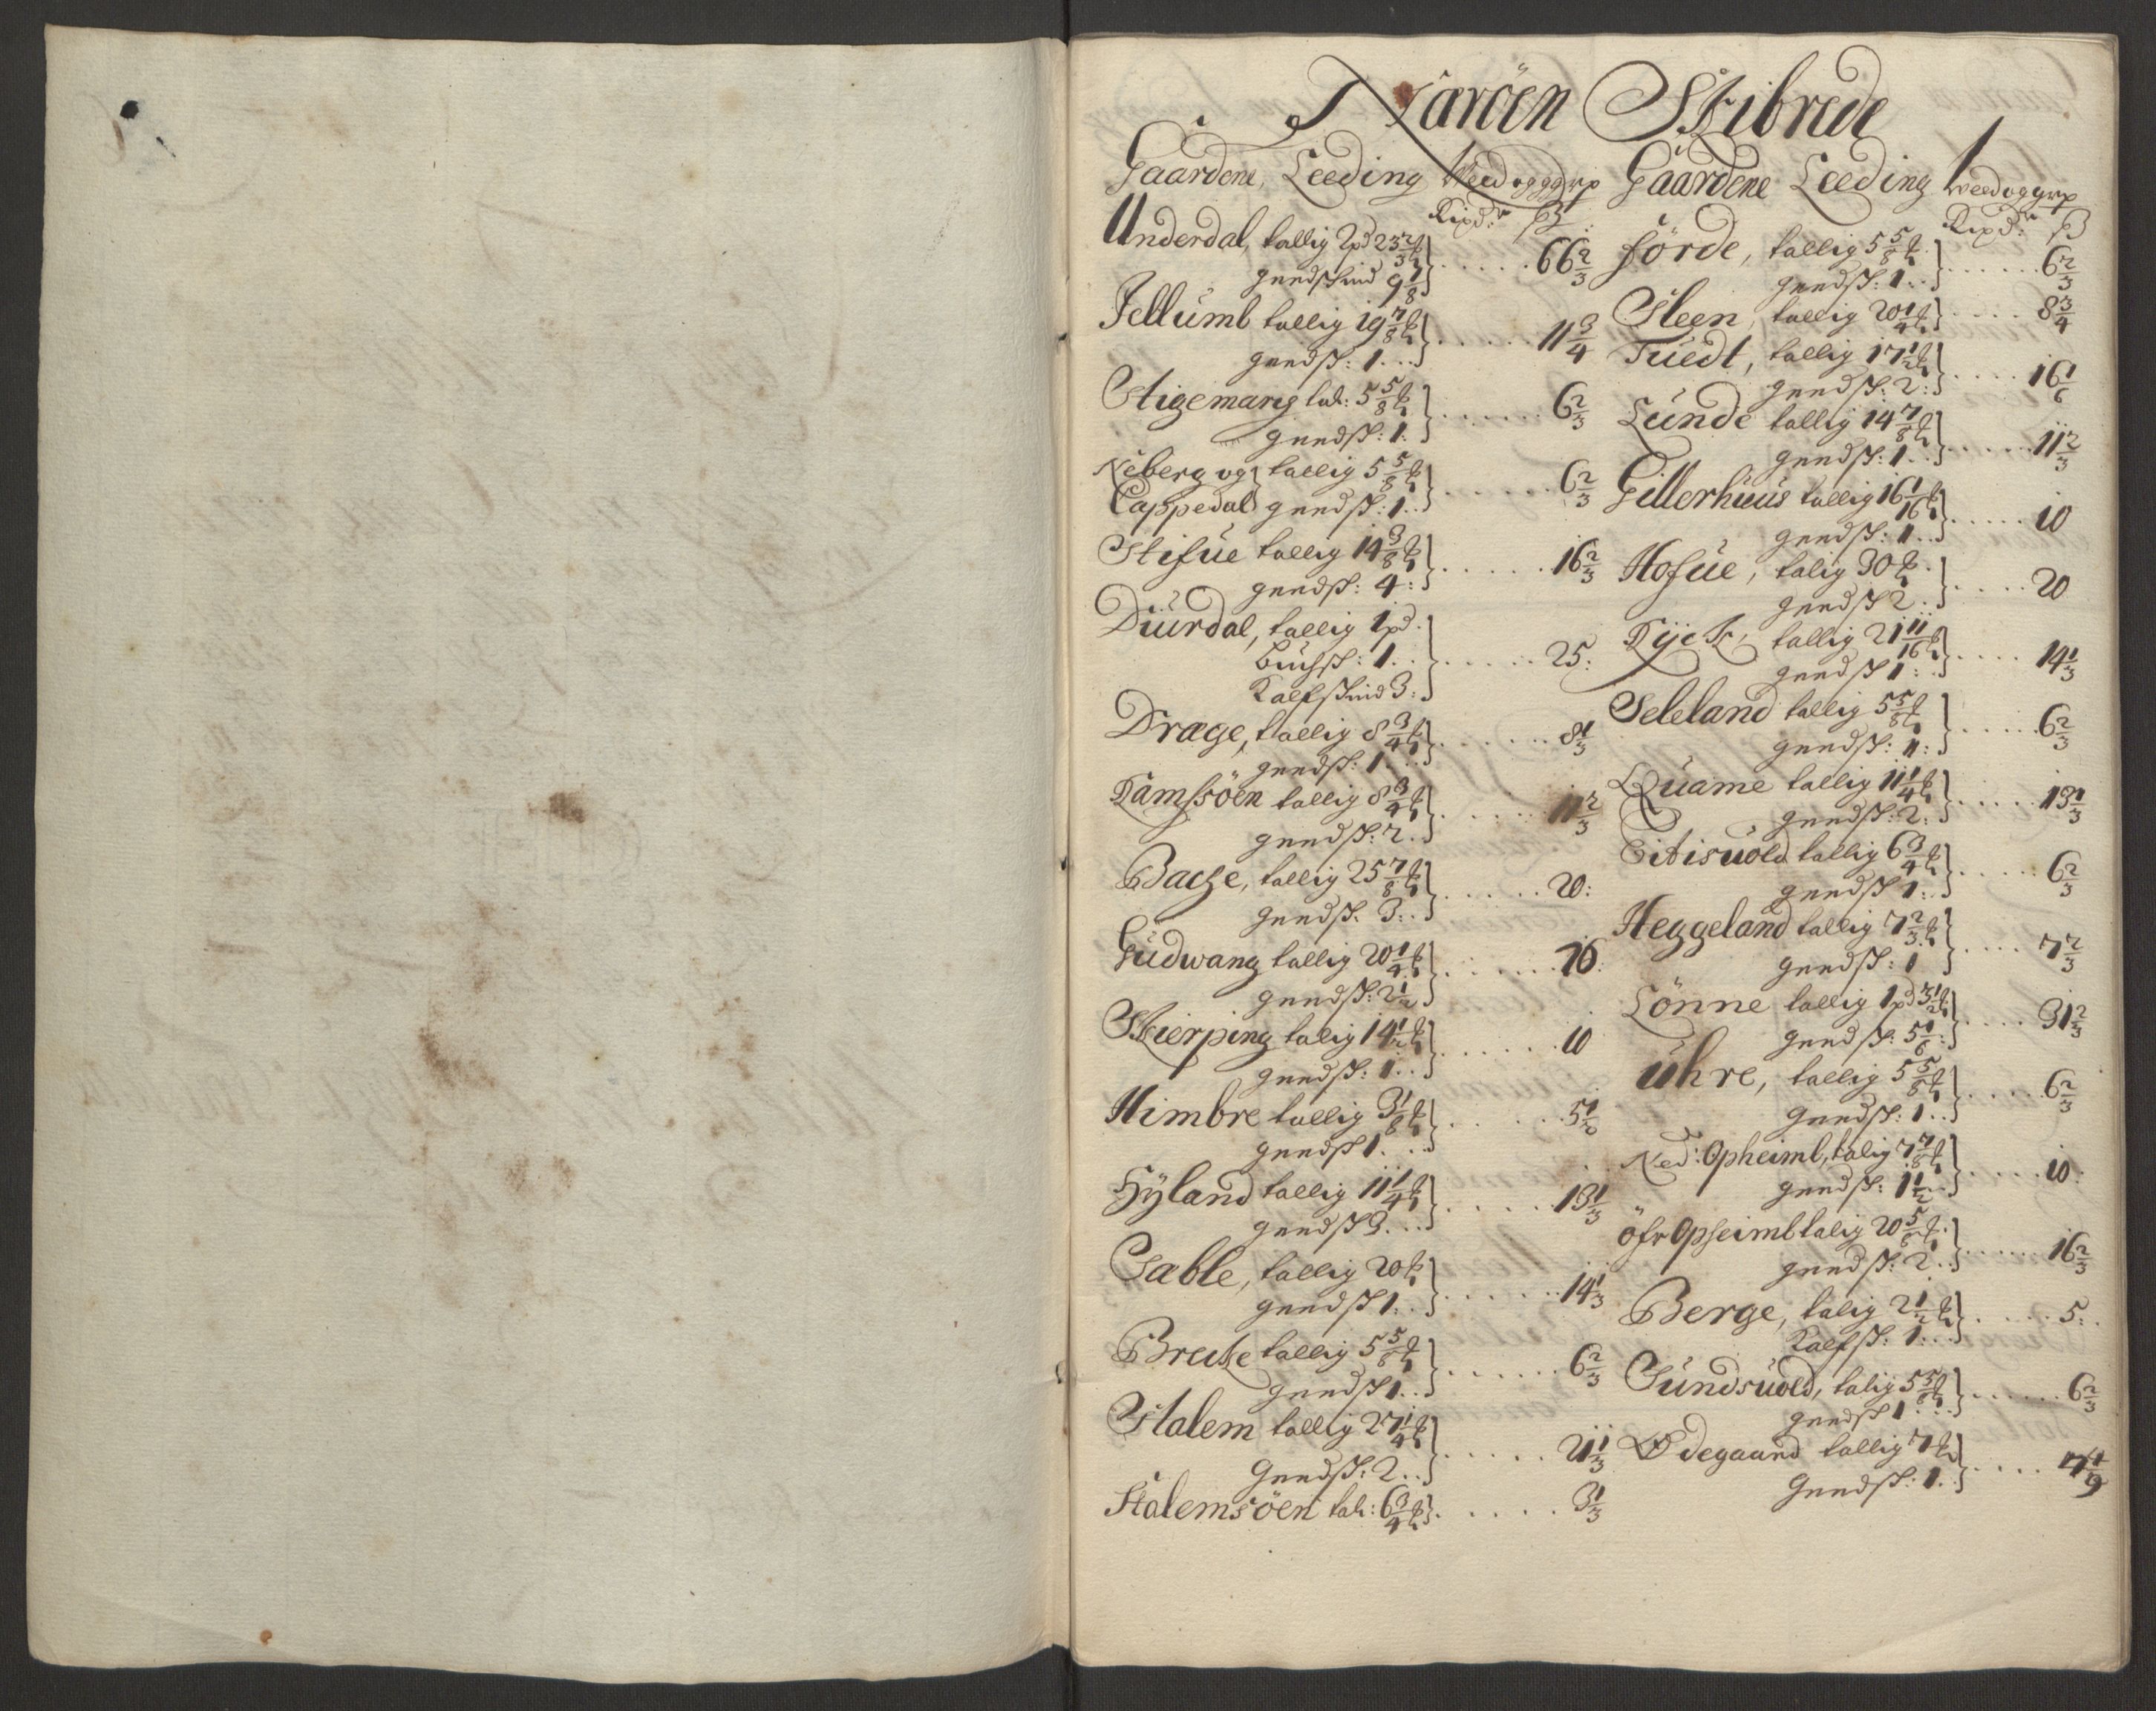 Naröen Skibrede
Gaardene, Leeding Weed og grp
Rixd:r ß
Underdal, tallig 2pd 23 2/3 ℔
geedskind 9 1/8 . . . . . 66 2/3
Jellumb tallig 19 7/8 ℔
geedsk: 1 . . . . . 11 3/4
Stigemarg tal: 5 5/8 ℔
geedsk: 1 . . . . . 6 2/3
Neberg og tallig 5 5/8 ℔
Cappedal geedsk: 1 . . . . . 6 2/3
Stifue tallig 14 3/8 ℔
geedsk: 4 . . . . . 16 2/3
Duurdal, tallig 1pd
Buchsk: 1
Kalfskind 3 . . . . . 25
Drage, tallig 8 3/4 ℔
geedsk: 1 . . . . . 8 1/3
Ramsöen tallig 8 3/4 ℔
geedsk: 2 . . . . . 11 2/3
Backe, tallig 25 7/8 ℔
geedsk: 3 . . . . . 20
Gudwang tallig 20 1/4 ℔
geedsk: 2 1/2 . . . . . 16
Skierping talig 14 1/2 ℔
geedsk: 1 . . . . . 10
Himbre tallig 3 1/8 ℔
geedsk 1 . . . . . 5 1/2
Hyland tallig 11 1/4 ℔
geedsk 3 . . . . . 13 1/3
Sable, tallig 20 ℔
geedsk 1 . . . . . 14 1/3
Brecke tallig 5 5/8 ℔
geedsk 1 . . . . . 6 2/3
Stalem tallig 27 1/4 ℔
Geedsk: 2 . . . . . 21 1/3
Stalemsöen tal: 6 3/4 ℔ . . . . . 3 1/3
Gaardene Leeding weed og grp
Rixd:r ß
förde, tallig 5 5/8 ℔
geedsk: 1 . . . . . 6 2/3
Steen, tallig 20 1/4 ℔ . . . . 8 3/4
Tuedt, tallig 17 1/2 ℔
geedsk: 2 . . . . 16 1/6
Lunde tallig 14 7/8 ℔
geedsk: 1 . . . . . 11 2/3
Gillerhuus tallig 16 1/16 ℔
geedsk: 1 . . . . . 10
Hofue, talig 30 ℔
geedsk 2 . . . . 20
Ryck, tallig 21 11/16 ℔
geedsk 1 . . . . 14 1/3
Seleland tallig 5 5/8 ℔
geedsk: 1 . . . . . 6 2/3
Quame tallig 11 1/4 ℔
geedsk: 2 . . . . . 13 1/3
Titisuold tallig 6 3/4 ℔
geedsk 1 . . . . . 6 2/3
Heggeland tallig 7 2/3 ℔
geedsk: 1 . . . . 7 2/3
Lönne tallig 1pd 3 1/2 ℔
geedsk: 5 1/6 . . . . 31 2/3
Uhre, tallig 5 5/8 ℔
geedsk: 1 . . . . . 6 2/3
Ned: Opheimb, talig 7 7/8 ℔
geedsk: 1 1/2 . . . . 10
öfr Opheimb talig 20 5/8 ℔
geedsk: 2 . . . . . 16 2/3
Berge, talig 2 1/2 ℔
Kalfsk: 1 . . . . 5
Sundsuold, talig 5 5/8 ℔
geedsk 1 . . . . . 6 2/3
Ödegaard tallig 7 ℔
Geedsk: 1 . . . . 7 1/9